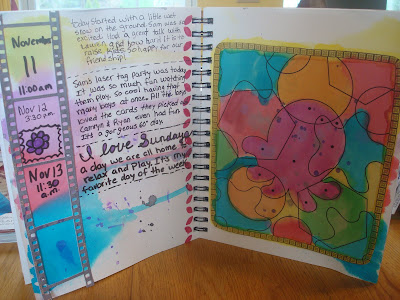 November
11
11:00am
Nov 12
3:30 p.m.
Nov 13
11:30
a.m.
today started with a little wet
snow on the ground. Sam was so
excited. Had a great talk with
friendship!
Sam's laser tag party was today
It was so much fun watching
them play. So cool having that
many boys at one. All the boys
loved the cards they picked
Camryn & Ryan even had fun
It's a gorgeous 60° day.
I love Sundays
a day we are all home to
relax and Play. It's my
favorite day of the week.